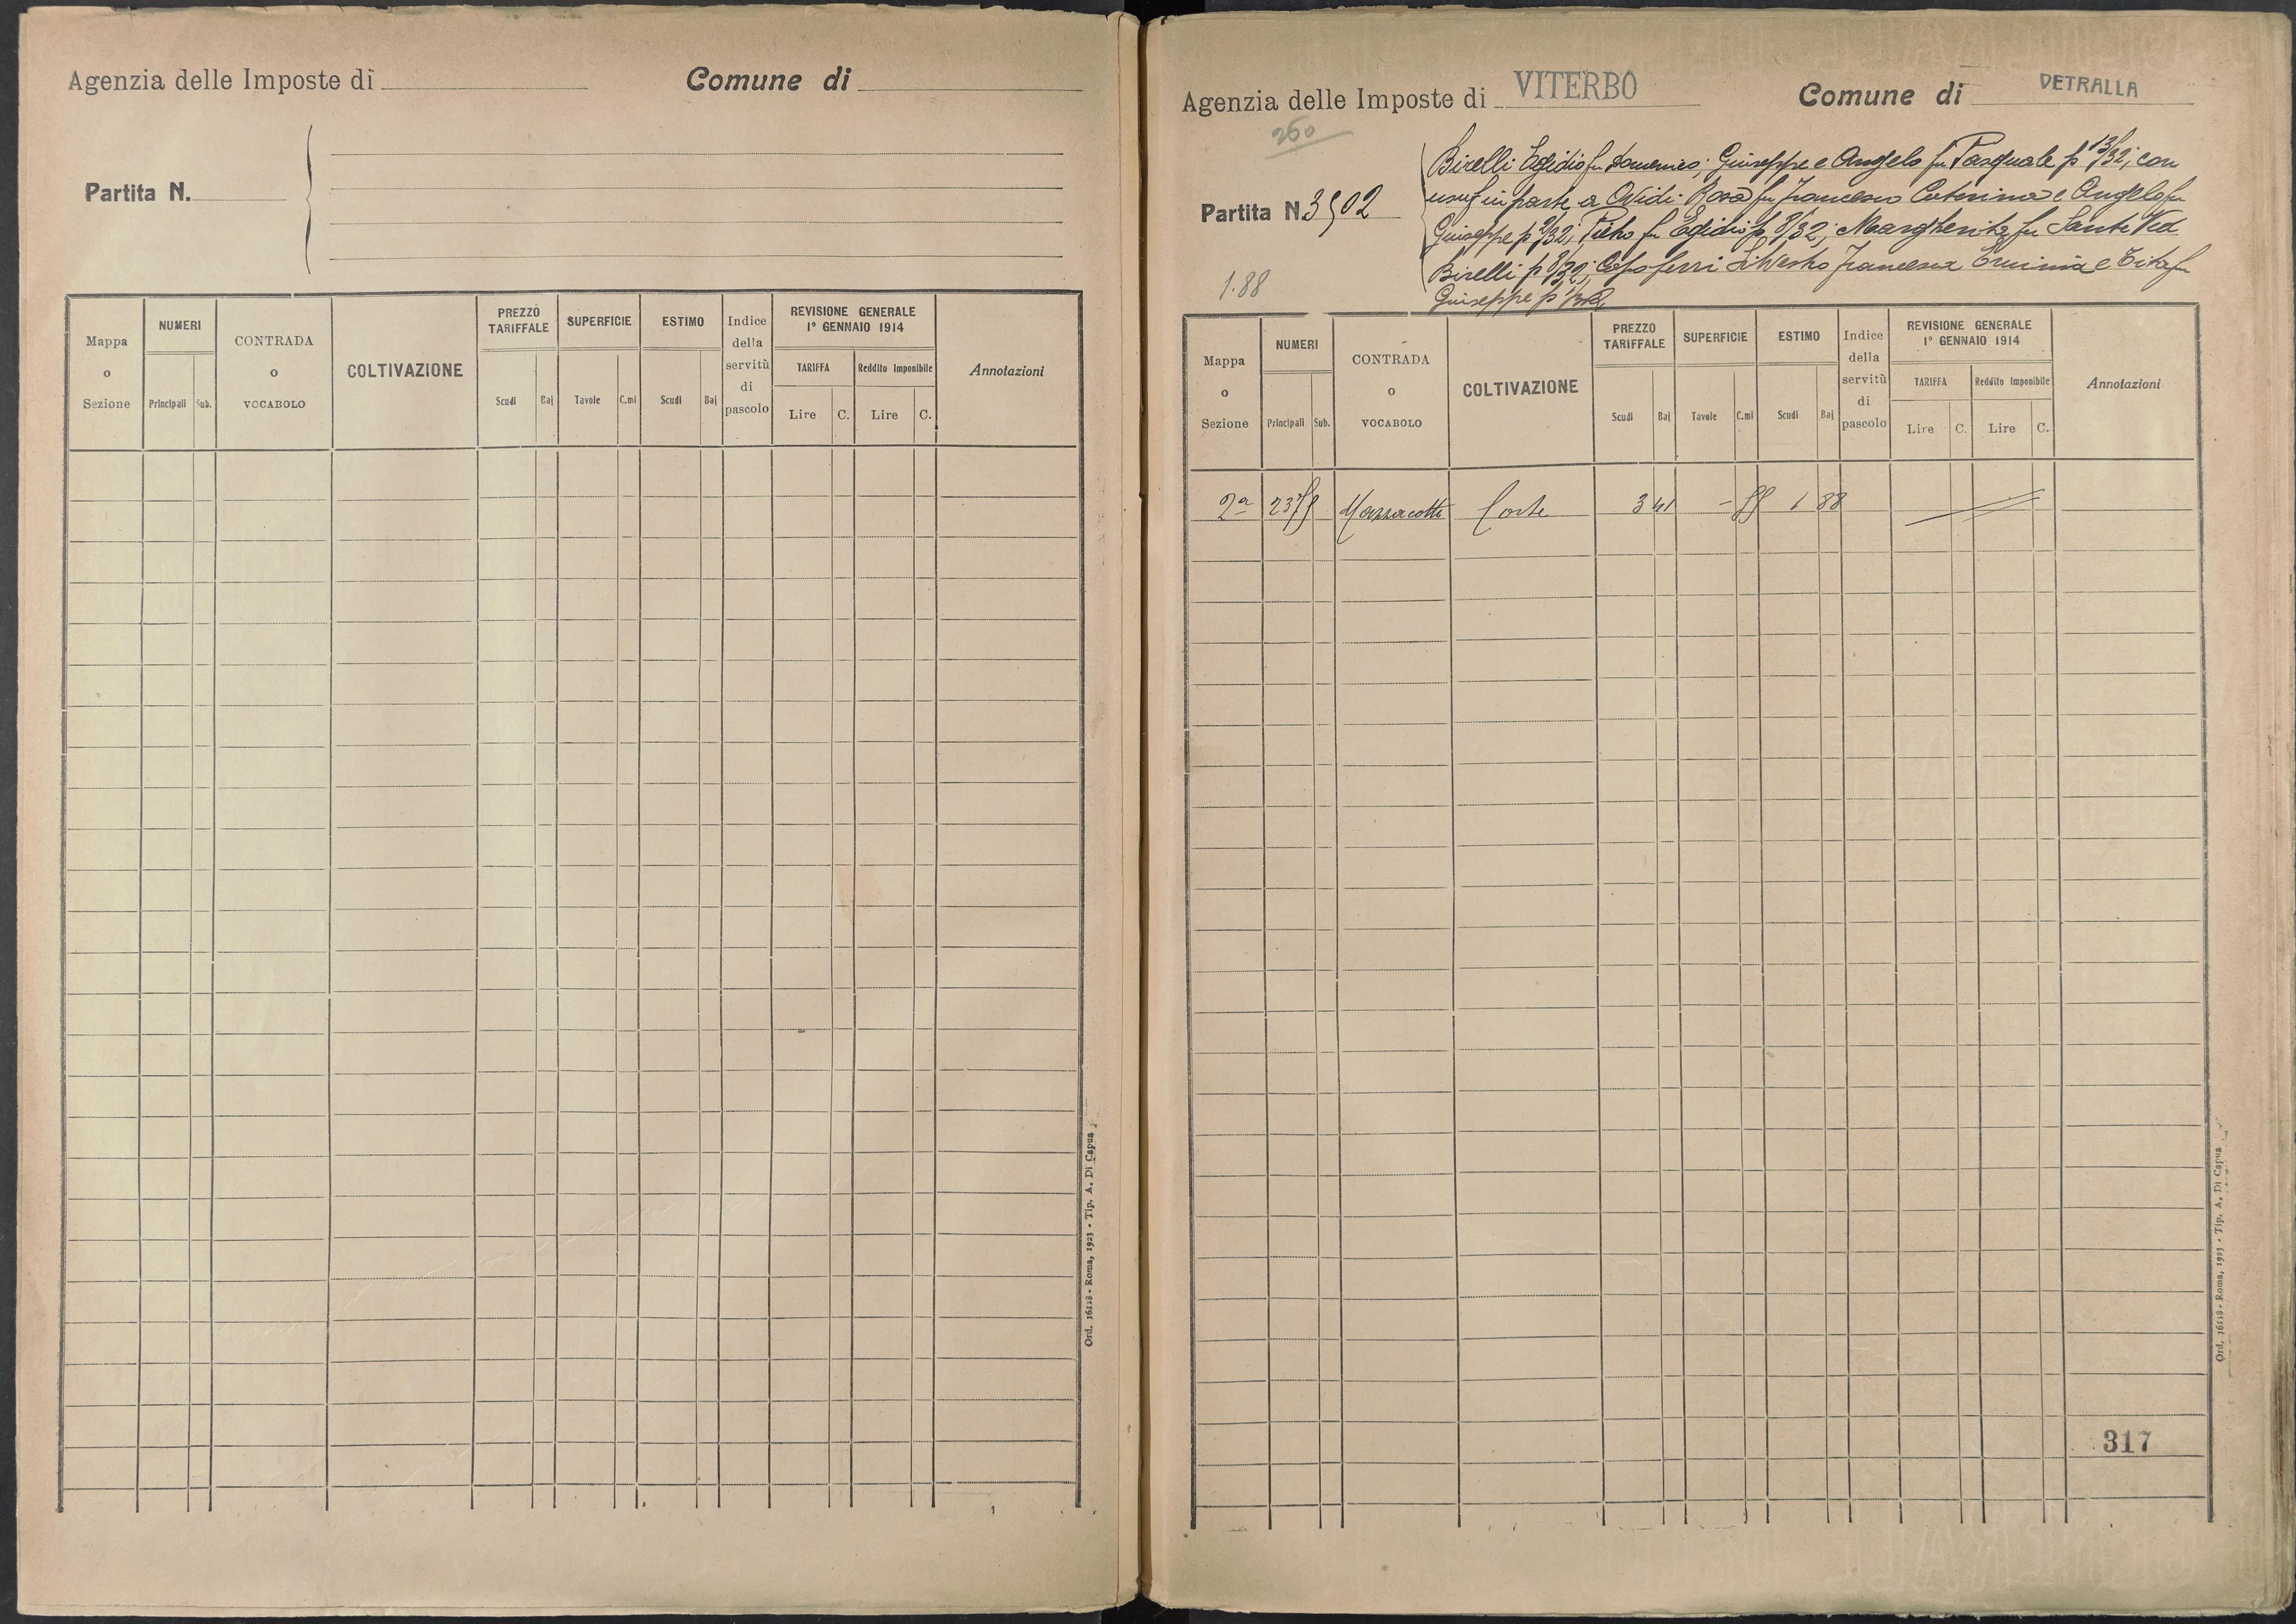 Agenzia delle Imposte di
Comune di
Partita N.
Mappa o Sezione
NUMERI
Principali
Sub.
CONTRADA o VOCABOLO
COLTIVAZIONE
PREZZO TARIFFALE
Scudi
Baj
SUPERFICIE
Tavole
C.mi
ESTIMO
Scudi
Baj
Indice della servitù di pascolo
REVISIONE GENERALE
1° GENNAIO 1914
TARIFFA
Lire
C.
Reddito Imponibile
Lire
C.
Annotazioni
Ord. 16118 - Roma, 1923 - Tip. A. Di Capua
Agenzia delle Imposte di VITERBO
Comune di VETRALLA
260
Partita N. 3502
1.88
Birelli Egidio fu Domenico; Giuseppe e Angelo fu Pasquale p 13/32; con
usuf in parte a Ovidi: Rosa fu Francesco Caterina e Angelo fu
Giuseppe p /32; Pietro fu Egidio p 8/32; Margherita fu Sante Ved
Birelli p 8/32; Capoferri Silvestro Francesca e Rita fu
Giuseppe p 1/32
Mappa o Sezione
NUMERI
Principali
Sub.
CONTRADA o VOCABOLO
COLTIVAZIONE
PREZZO TARIFFALE
Scudi
Baj
SUPERFICIE
Tavole
C.mi
ESTIMO
Scudi
Baj
Indice della servitù di pascolo
REVISIONE GENERALE
1° GENNAIO 1914
TARIFFA
Lire
C.
Reddito Imponibile
Lire
C.
Annotazioni
2a Mazzacotti Corte 3 41 - 55 1 88
317
Ord. 16118 - Roma, 1923 - Tip. A. Di Capua